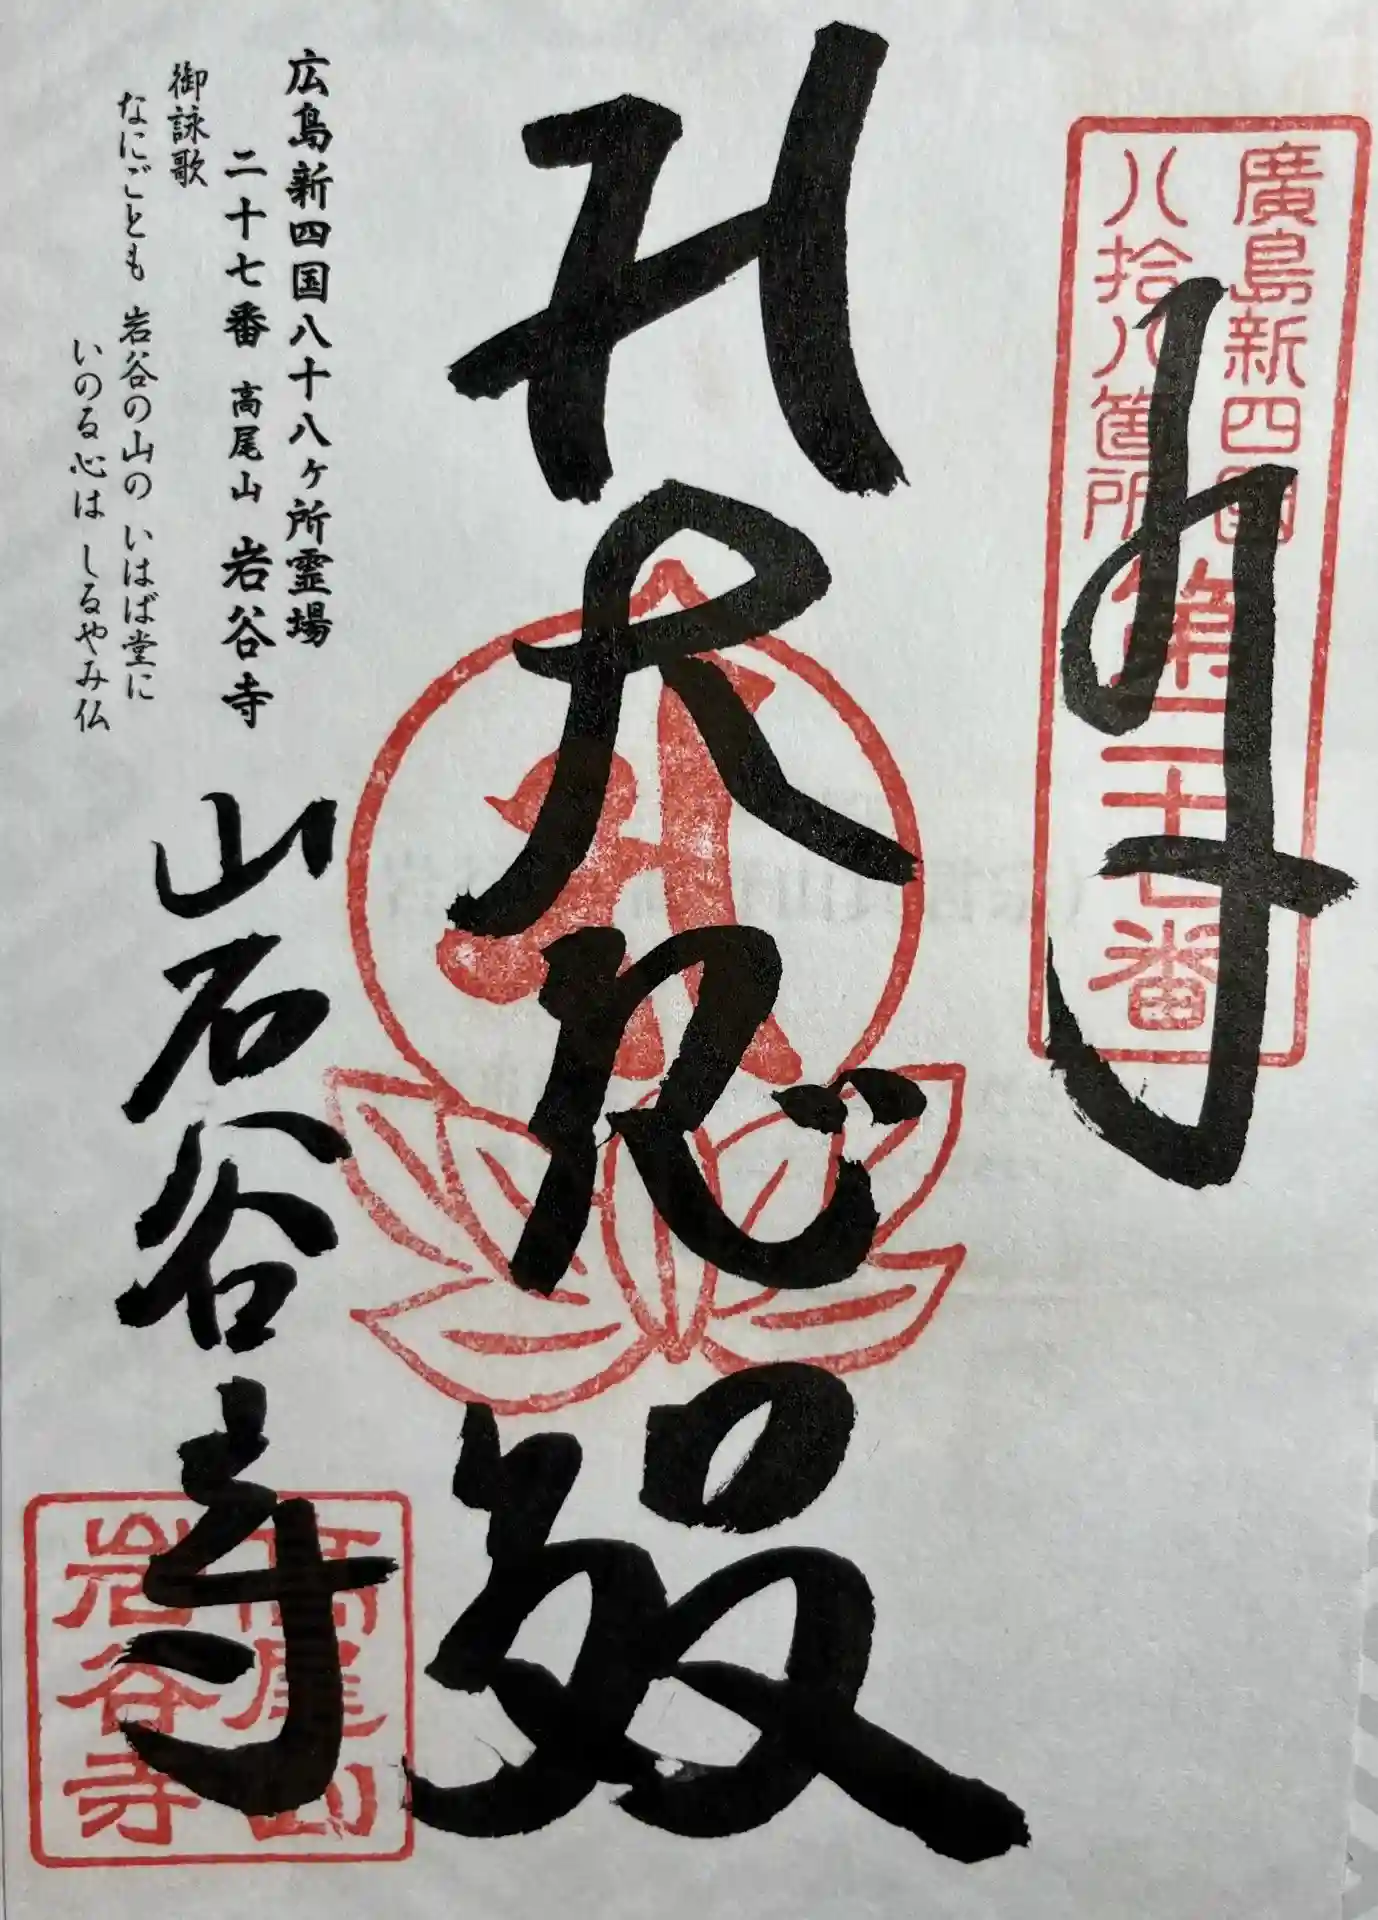 廣島新四國
八拾八箇所
第二十七番
奉拝
大悲殿
広島新四国八十八ヶ所霊場
二十七番 高尾山 岩谷寺
御詠歌
なにごとも 岩谷の山の いはば堂に
いのる心は しるやみ仏
岩谷寺
高尾山
岩谷寺